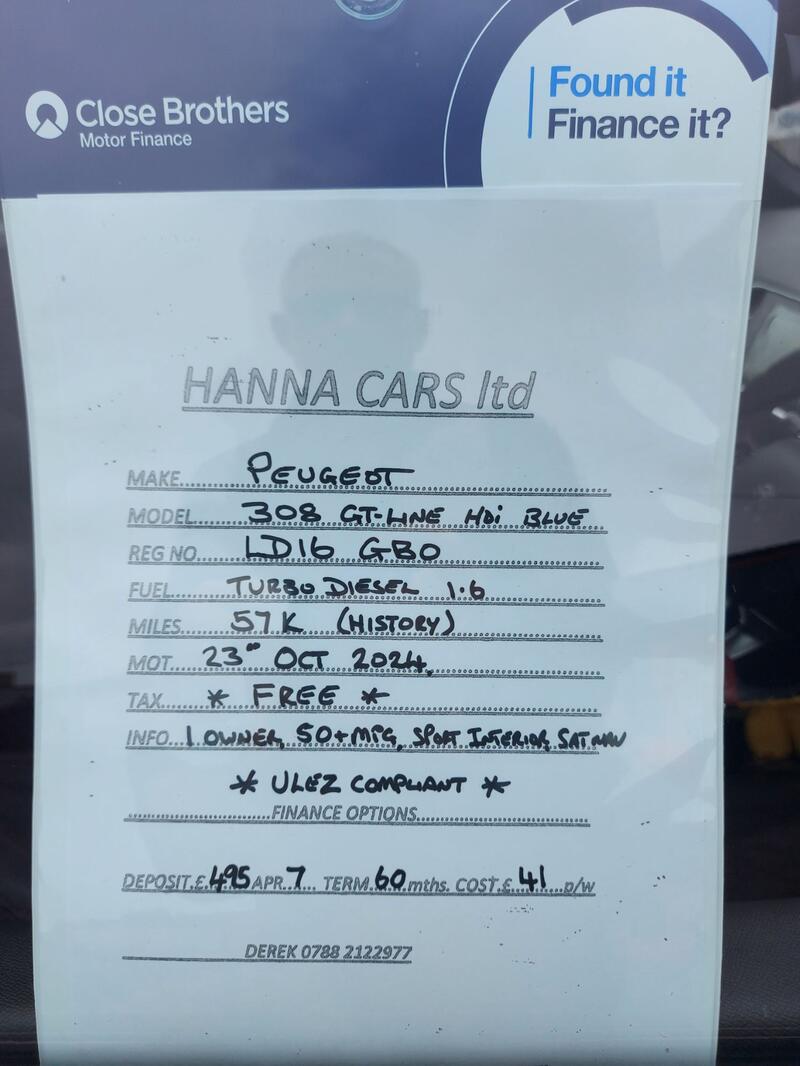 Close Brothers
Motor Finance
Found it
Finance it?
HANNA CARS ltd
MAKE.....PEUGEOT
MODEL.....308 GT-LINE HDi BLUE
REG NO.....LD16 GBO
FUEL.....TURBO DIESEL 1.6
MILES.....57K (HISTORY)
MOT.....23RD OCT 2024
TAX.....* FREE *
INFO...1 OWNER, 50+MPG, SPORT INTERIOR, SAT NAV
* ULEZ COMPLIANT *
.....FINANCE OPTIONS.....
DEPOSIT.£.495 APR..7... TERM.60.mths. COST.£.41...p/w
DEREK 0788 2122977